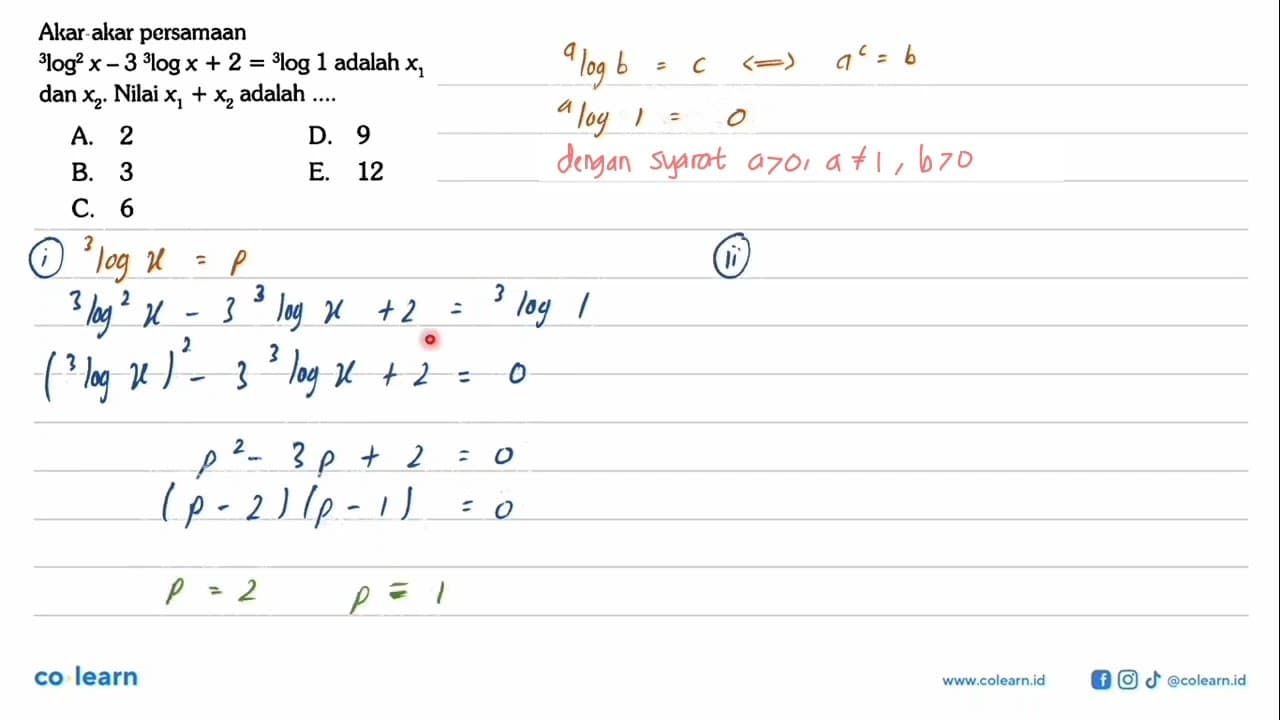 Akar-akar persamaan
³log² x – 3 ³log x + 2 = ³log 1 adalah x₁
dan x₂. Nilai x₁ + x₂ adalah ....
A. 2 D. 9
B. 3 E. 12
C. 6
ᵃlog b = c <=> aᶜ = b
ᵃlog 1 = 0
dengan syarat a>0, a≠1, b>0
i ³log x = p
³log² x - 3 ³log x + 2 = ³log 1
(³log x)² - 3 ³log x + 2 = 0
p² - 3p + 2 = 0
(p - 2)(p - 1) = 0
p = 2 p = 1
ii
co learn
www.colearn.id @colearn.id